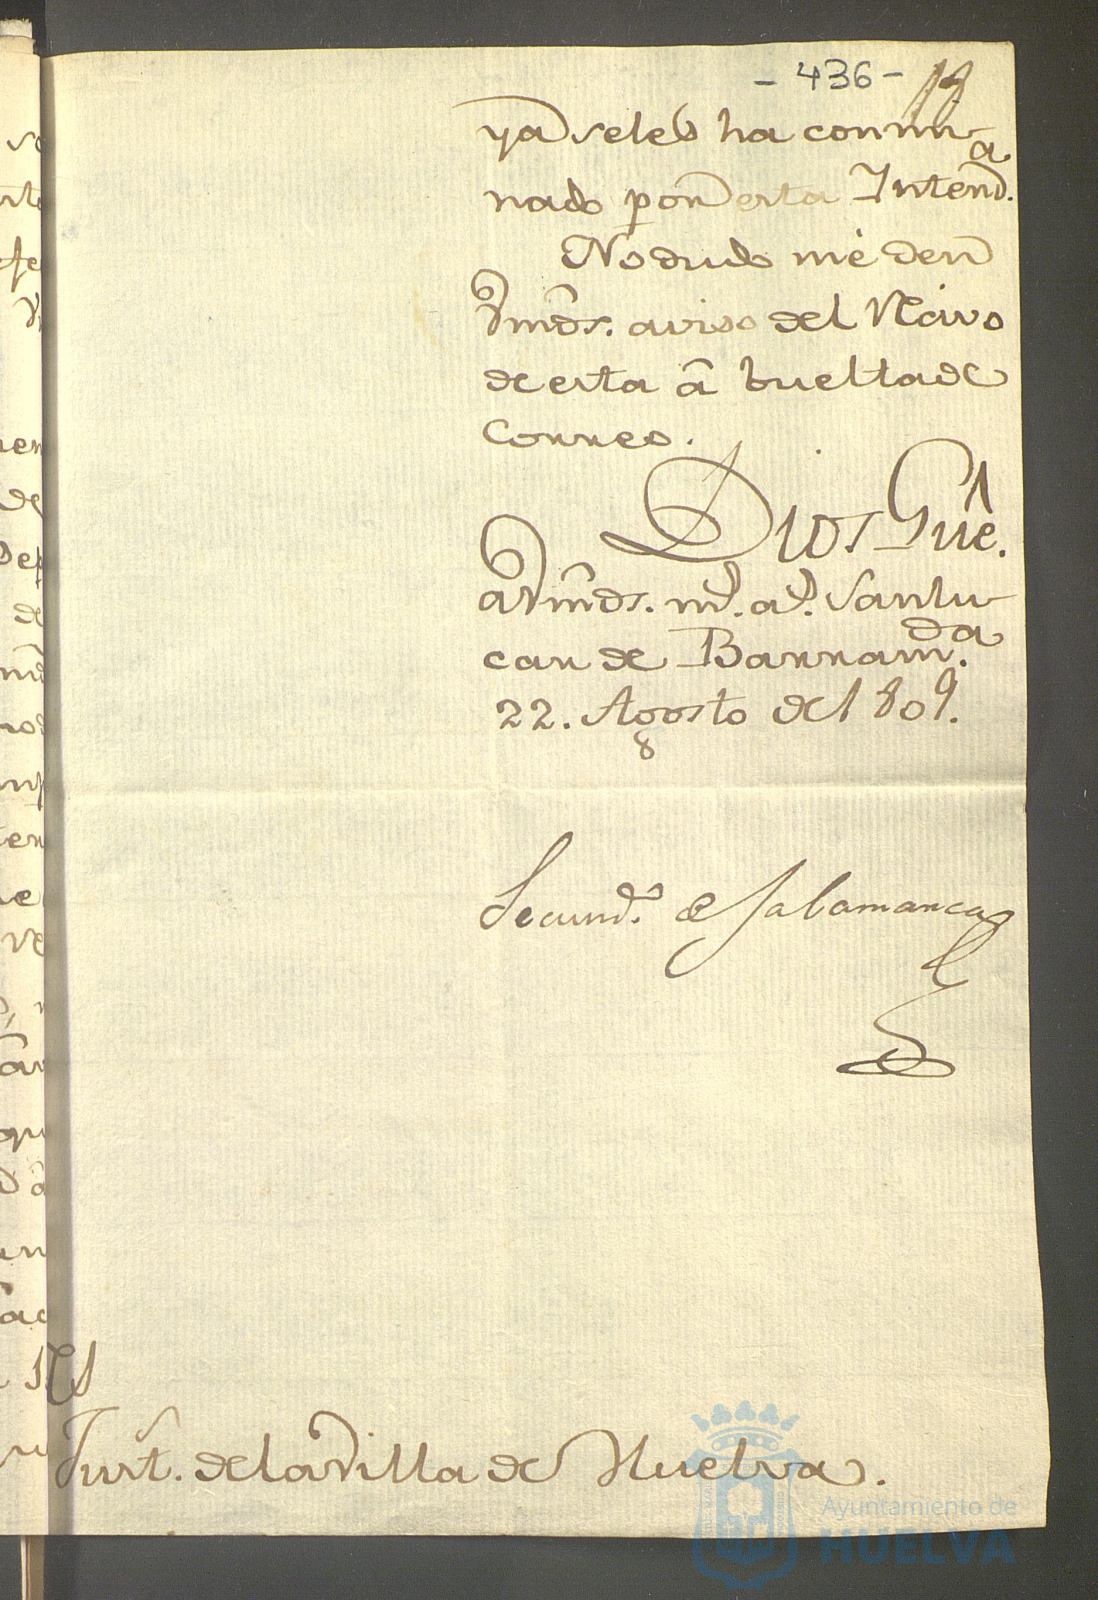 - 436 -
ya seles ha conmi
nado por esta Intend.ª
No dudo me den
Vmds. aviso del Recivo
de esta â buelta de
Correo.
Dios Gûe.
a Vmds. m.s a.s Sanlu
car de Barram.da
22. Agosto de 1809.
8
Secund.º de Salamanca
Just.ª de la Villa de Huelva.
Ayuntamiento de
HUELVA